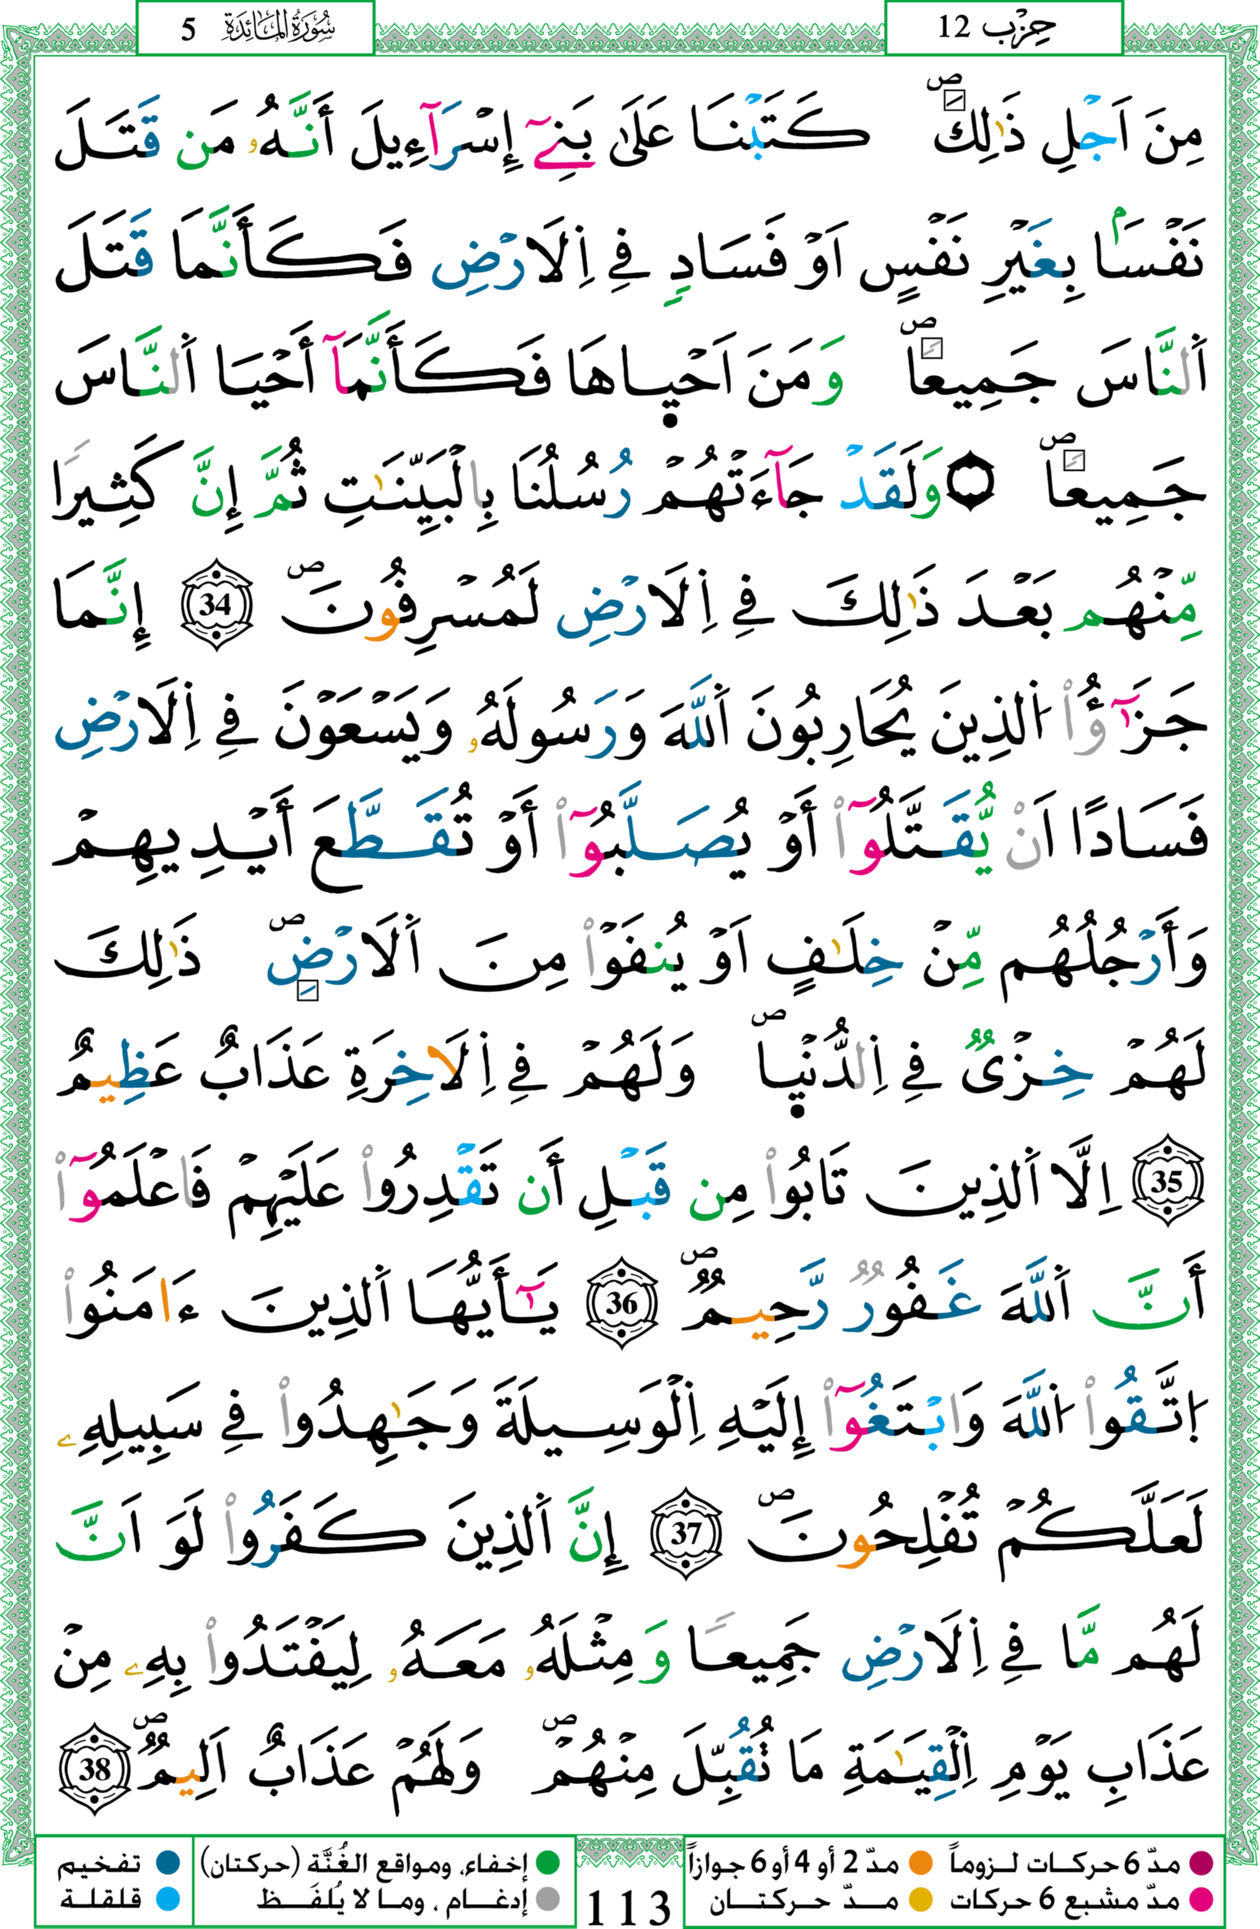 حِزْب 12
سُورَةُ الْمَائِدَة 5
مِنَ اَجْلِ ذَٰلِكَۖ كَتَبْنَا عَلَىٰ بَنِےٓ إِسْرَآءِيلَ أَنَّهُۥ مَن قَتَلَ
نَفْسَاۢ بِغَيْرِ نَفْسٍ اَوْ فَسَادٖ فِے اِ۬لَارْضِ فَكَأَنَّمَا قَتَلَ
اَ۬لنَّاسَ جَمِيعاٗۖ وَمَنَ اَحْي۪اهَا فَكَأَنَّمَآ أَحْيَا اَ۬لنَّاسَ
جَمِيعاٗۖ ۞ وَلَقَدْ جَآءَتْهُمْ رُسُلُنَا بِالْبَيِّنَٰتِ ثُمَّ إِنَّ كَثِيراٗ
مِّنْهُم بَعْدَ ذَٰلِكَ فِے اِ۬لَارْضِ لَمُسْرِفُونَۖ 34 إِنَّمَا
جَزَٰٓؤُاْ اُ۬لذِينَ يُحَارِبُونَ اَ۬للَّهَ وَرَسُولَهُۥ وَيَسْعَوْنَ فِے اِ۬لَارْضِ
فَسَادًا اَنْ يُّقَتَّلُوٓاْ أَوْ يُصَلَّبُوٓاْ أَوْ تُقَطَّعَ أَيْدِيهِمْ
وَأَرْجُلُهُم مِّنْ خِلَٰفٍ اَوْ يُنفَوْاْ مِنَ اَ۬لَارْضِۖ ذَٰلِكَ
لَهُمْ خِزْيٞ فِے اِ۬لدُّنْي۪اۖ وَلَهُمْ فِے اِ۬لَاخِرَةِ عَذَابٌ عَظِيمٌ
35 اِلَّا اَ۬لذِينَ تَابُواْ مِن قَبْلِ أَن تَقْدِرُواْ عَلَيْهِمْ فَاعْلَمُوٓاْ
أَنَّ اَ۬للَّهَ غَفُورٞ رَّحِيمٞۖ 36 يَٰٓأَيُّهَا اَ۬لذِينَ ءَامَنُواْ
اُ۪تَّقُواْ اُ۬للَّهَ وَابْتَغُوٓاْ إِلَيْهِ اِ۬لْوَسِيلَةَ وَجَٰهِدُواْ فِے سَبِيلِهِۦ
لَعَلَّكُمْ تُفْلِحُونَۖ 37 إِنَّ اَ۬لذِينَ كَفَرُواْ لَوَ اَنَّ
لَهُم مَّا فِے اِ۬لَارْضِ جَمِيعاٗ وَمِثْلَهُۥ مَعَهُۥ لِيَفْتَدُواْ بِهِۦ مِنْ
عَذَابِ يَوْمِ اِ۬لْقِيَٰمَةِ مَا تُقُبِّلَ مِنْهُمْۖ وَلَهُمْ عَذَابٌ اَلِيمٞۖ 38
مدّ 6 حركات لـزوماً مدّ 2 أو 4 أو 6 جوازاً إخفاء، ومواقع الغُنَّة (حركتان) تفخيم
مدّ مشبع 6 حركات مدّ حركتـان 113 إدغام ، وما لا يُلفَظ قلقلة